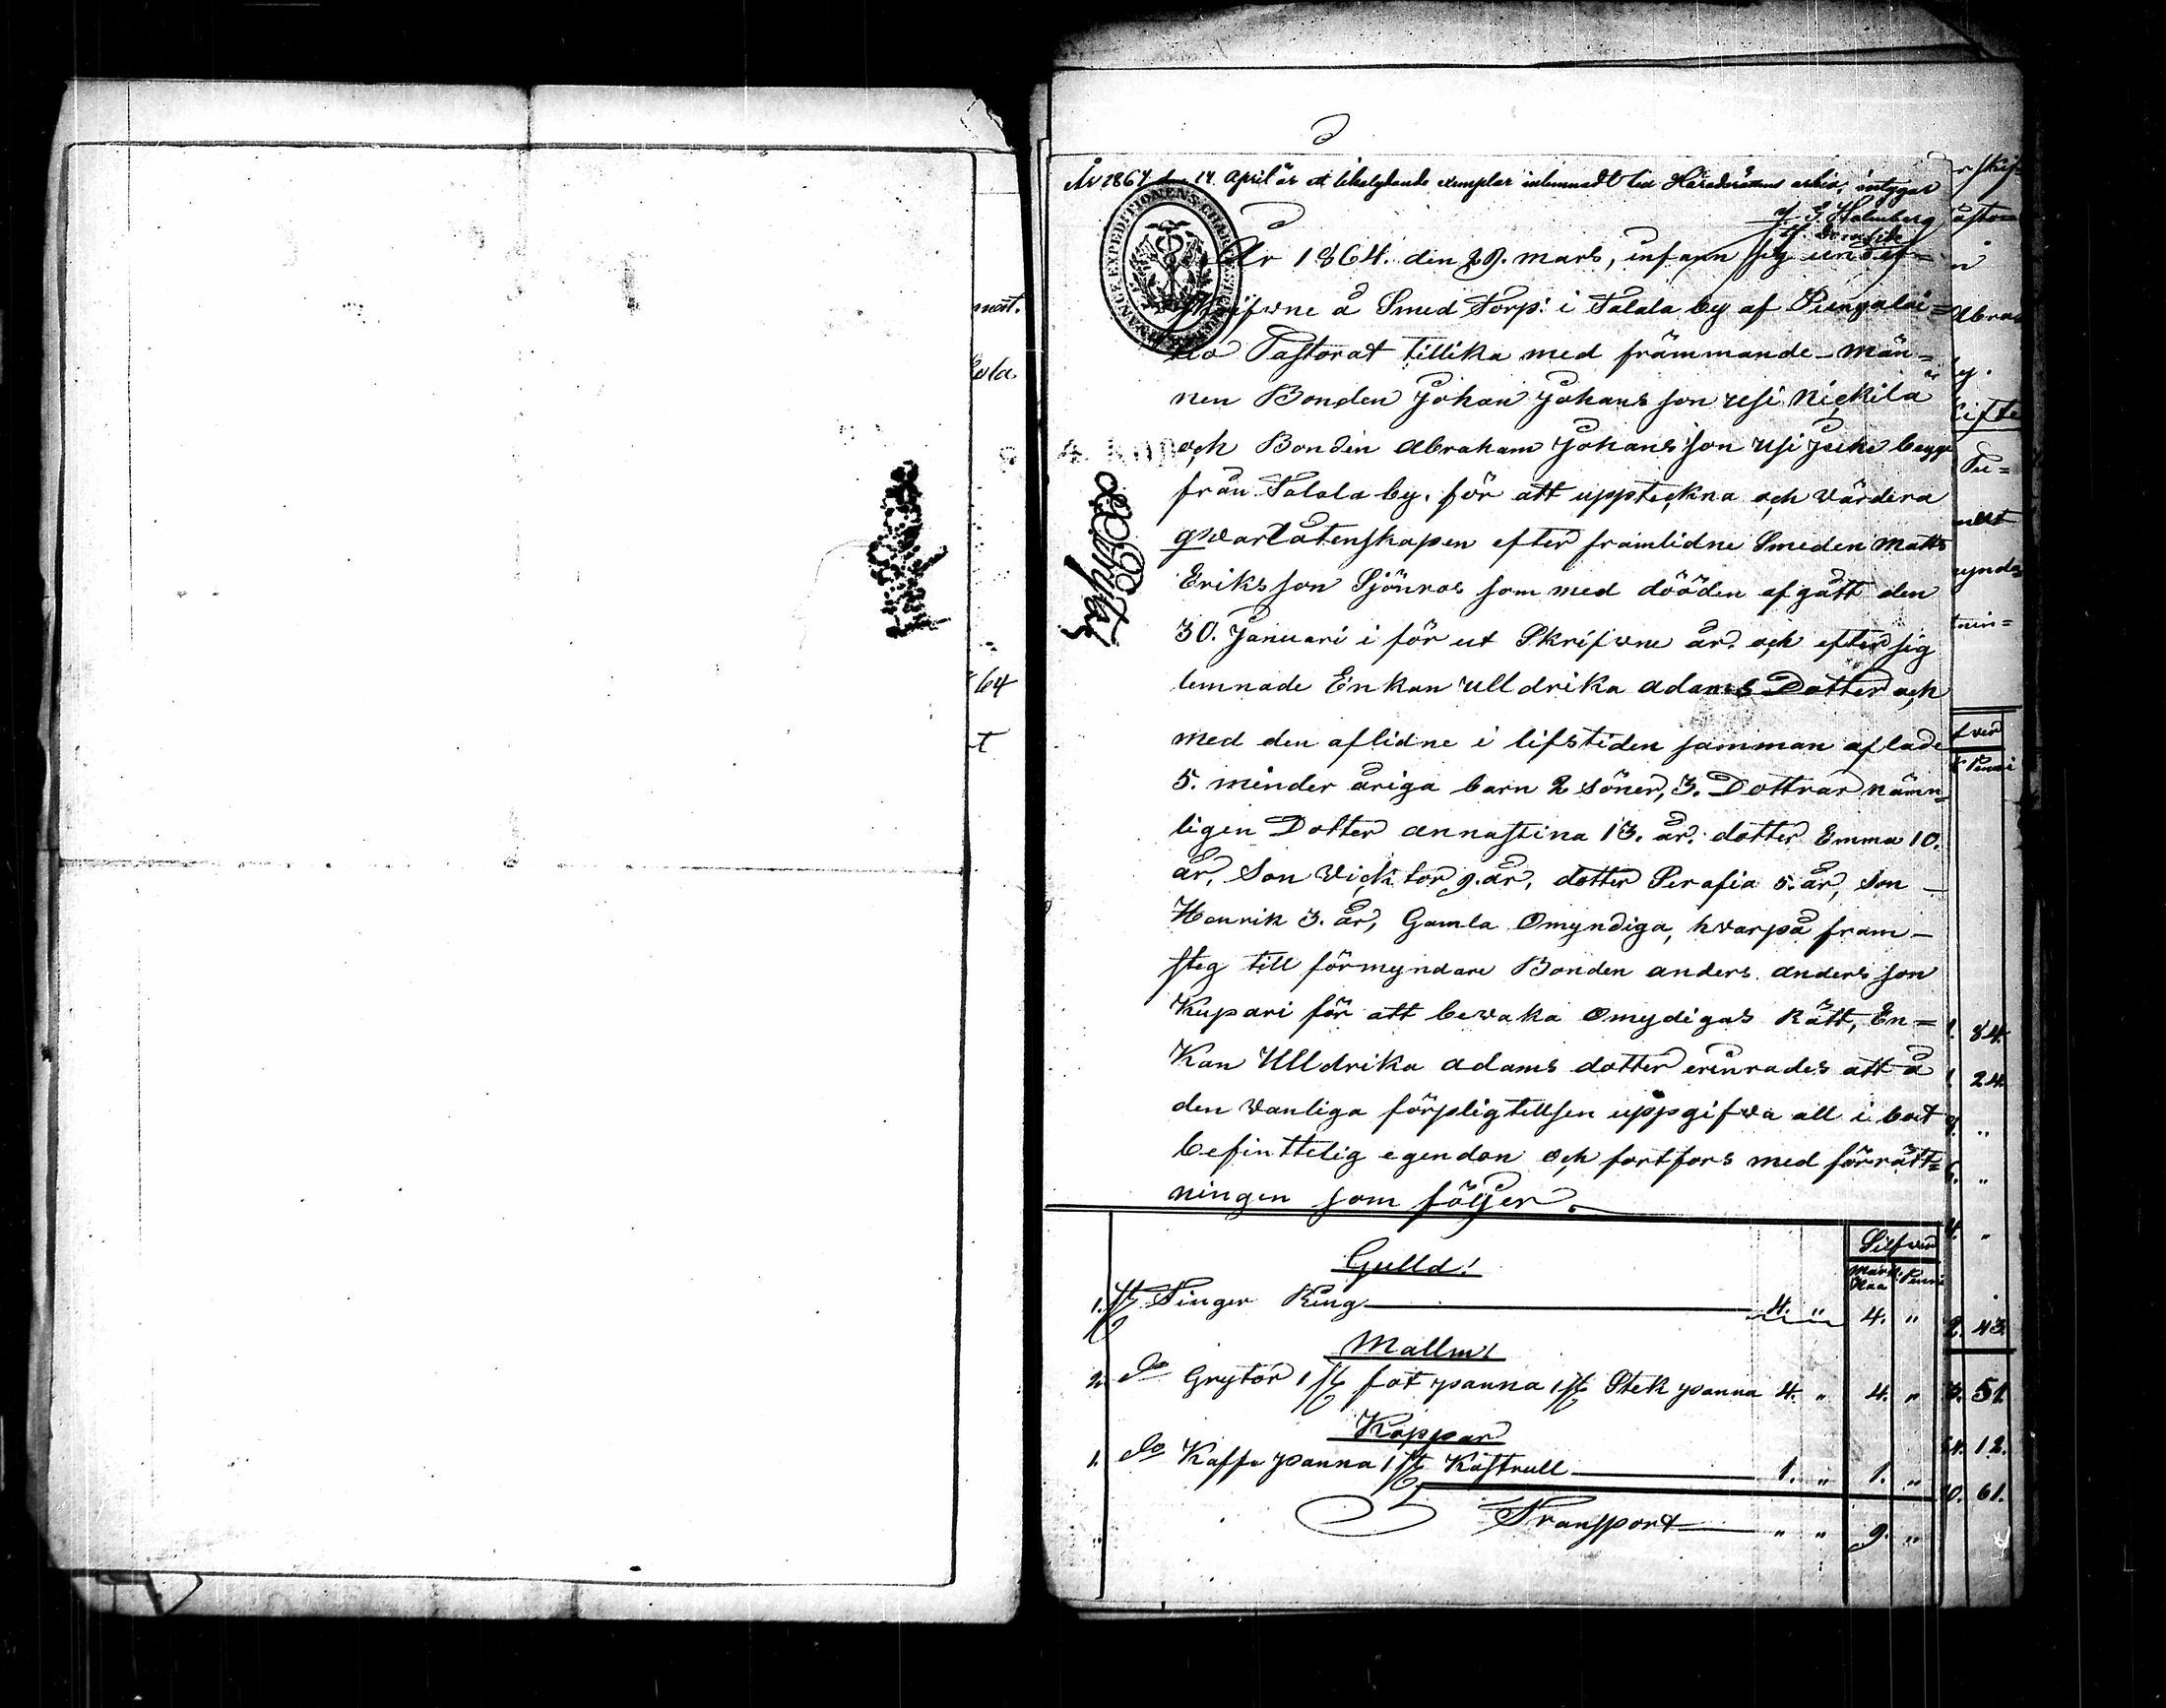 mat.
64
t
År 1864 14 April är ett likalydande exemplar inlemnadt till Häradsrättens arkiv, intygar
År 1864. den 29. mars, infann sig under=
skrifvne å Smed Torp: i Talala by af Pungalai=
tio Pastorat tillika med främmande män=
nen Bonden Johan Johans son usi Nickilä
och Bonden Abraham Johans son Usi begge
från Talala by, för att uppteckna och värdera
qwarlåtenskapen efter framlidne Smeden Matts
Eriks son Sjönros som med dööden afgått den
30. Januari i för ut Skrifvne år. och efter sig
lemnade Enkan Ulldrika Adams Dotter och
med den aflidne i lifstiden samman aflade
5. minder åriga barn 2 söner, 3. Dottrar näm=
ligen Dotter annastina 13. år. dotter Emma 10.
år, Son Vicktor 9. år, dotter Serafia 5. år, Son
Henrik 3. år, Gamla Omyndiga, hvarpå fram-
steg till förmyndare Bonden anders anders son
Kupari för att bevaka Omydigas Rätt, En=
Kan Ulldrika adams dotter erinrades att å
den vanliga förpligtellsen uppgifva all i boet
befinttelig egendon och fortfors med förrätt=
ningen som följer.
Silfver
Mark Penni
Gulld!
1. st Finger Ring 4. " 4. "
Mallm!
2. do Grytor 1 st fot panna 1 st Stek panna 4. " 4. "
Koppar
1. do Kaffe panna 1 st Kastrull 1. " 1. "
Transport " " 9. "
84.
24.
43
51.
12.
61.